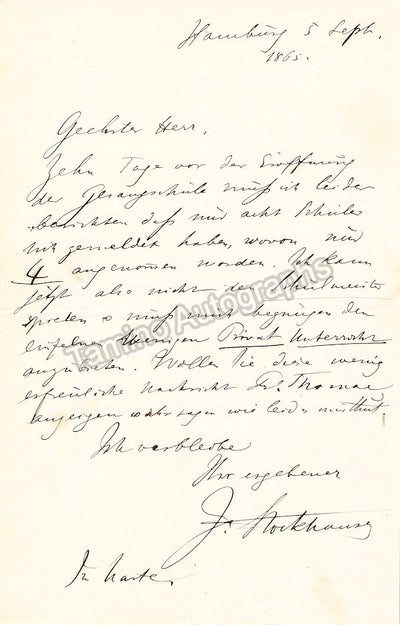 Hamburg 5 Sept.
1865.
Geehrter Herr,
Zehn Tage vor der Eröffnung
der Gesangschule muß ich leider
berichten daß nur acht Schüler
sich gemeldet haben, wovon nur
4 angenommen worden. Ich kann
jetzt also nicht den Schulmeister
spielen u muß mich begnügen den
einzelnen wenigen Privat Unterricht
anzubieten. Wollen Sie diese wenig
erfreuliche Nachricht Thomae
anzeigen sagen wie leid es mir thut.
Ich verbleibe
Ihr ergebener
J. Stockhausen
Tamino Autographs